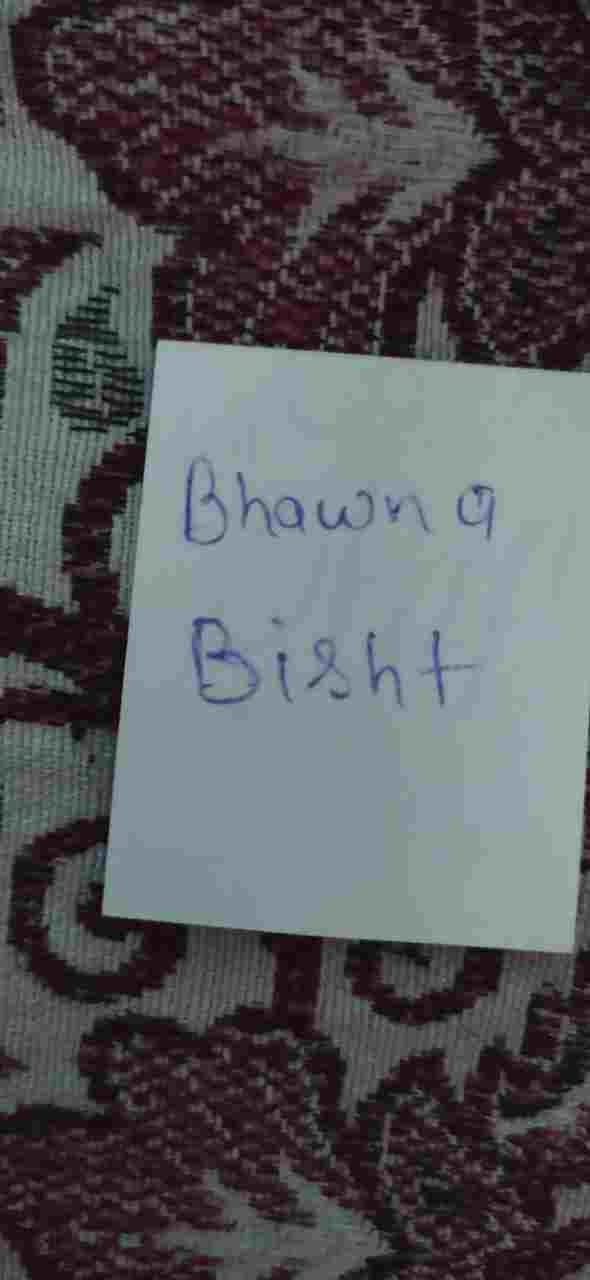 Bhawna
Bisht